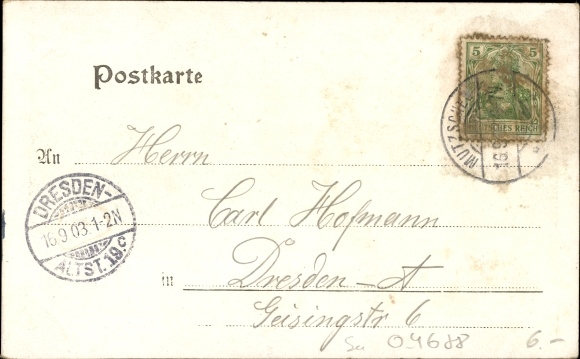 5 5
Postkarte
DEUTSCHES REICH
MUTZSCHEN
An Herrn
DRESDEN-
16.9.03.1-2N
ALTST.19.c
Carl Hofmann
in Dresden-A
Geisingstr 6
04688 6.-